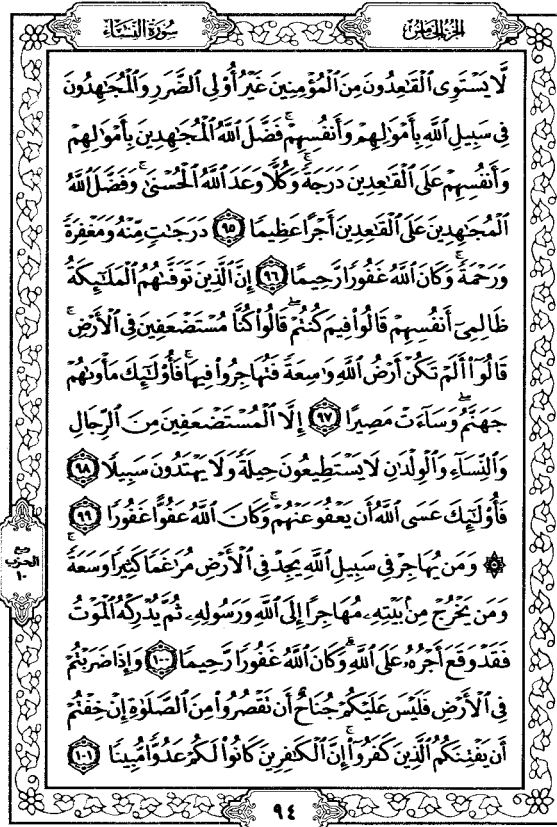 سُورَةُ النِّسَاءِ
الجزء الخامس
لَّا يَسْتَوِى ٱلْقَـٰعِدُونَ مِنَ ٱلْمُؤْمِنِينَ غَيْرُ أُو۟لِى ٱلضَّرَرِ وَٱلْمُجَـٰهِدُونَ
فِى سَبِيلِ ٱللَّهِ بِأَمْوَٰلِهِمْ وَأَنفُسِهِمْ ۚ فَضَّلَ ٱللَّهُ ٱلْمُجَـٰهِدِينَ بِأَمْوَٰلِهِمْ
وَأَنفُسِهِمْ عَلَى ٱلْقَـٰعِدِينَ دَرَجَةً ۚ وَكُلًّا وَعَدَ ٱللَّهُ ٱلْحُسْنَىٰ ۚ وَفَضَّلَ ٱللَّهُ
ٱلْمُجَـٰهِدِينَ عَلَى ٱلْقَـٰعِدِينَ أَجْرًا عَظِيمًا ٩٥ دَرَجَـٰتٍ مِّنْهُ وَمَغْفِرَةً
وَرَحْمَةً ۚ وَكَانَ ٱللَّهُ غَفُورًا رَّحِيمًا ٩٦ إِنَّ ٱلَّذِينَ تَوَفَّىٰهُمُ ٱلْمَلَـٰٓئِكَةُ
ظَالِمِىٓ أَنفُسِهِمْ قَالُوا۟ فِيمَ كُنتُمْ ۖ قَالُوا۟ كُنَّا مُسْتَضْعَفِينَ فِى ٱلْأَرْضِ ۚ
قَالُوٓا۟ أَلَمْ تَكُنْ أَرْضُ ٱللَّهِ وَٰسِعَةً فَتُهَاجِرُوا۟ فِيهَا ۚ فَأُو۟لَـٰٓئِكَ مَأْوَىٰهُمْ
جَهَنَّمُ ۖ وَسَآءَتْ مَصِيرًا ٩٧ إِلَّا ٱلْمُسْتَضْعَفِينَ مِنَ ٱلرِّجَالِ
وَٱلنِّسَآءِ وَٱلْوِلْدَٰنِ لَا يَسْتَطِيعُونَ حِيلَةً وَلَا يَهْتَدُونَ سَبِيلًا ٩٨
فَأُو۟لَـٰٓئِكَ عَسَى ٱللَّهُ أَن يَعْفُوَ عَنْهُمْ ۚ وَكَانَ ٱللَّهُ عَفُوًّا غَفُورًا ٩٩
۞ وَمَن يُهَاجِرْ فِى سَبِيلِ ٱللَّهِ يَجِدْ فِى ٱلْأَرْضِ مُرَٰغَمًا كَثِيرًا وَسَعَةً ۚ
وَمَن يَخْرُجْ مِنۢ بَيْتِهِۦ مُهَاجِرًا إِلَى ٱللَّهِ وَرَسُولِهِۦ ثُمَّ يُدْرِكْهُ ٱلْمَوْتُ
فَقَدْ وَقَعَ أَجْرُهُۥ عَلَى ٱللَّهِ ۗ وَكَانَ ٱللَّهُ غَفُورًا رَّحِيمًا ١٠٠ وَإِذَا ضَرَبْتُمْ
فِى ٱلْأَرْضِ فَلَيْسَ عَلَيْكُمْ جُنَاحٌ أَن تَقْصُرُوا۟ مِنَ ٱلصَّلَوٰةِ إِنْ خِفْتُمْ
أَن يَفْتِنَكُمُ ٱلَّذِينَ كَفَرُوٓا۟ ۚ إِنَّ ٱلْكَـٰفِرِينَ كَانُوا۟ لَكُمْ عَدُوًّا مُّبِينًا ١٠١
ربع
الحزب
١٠
٩٤